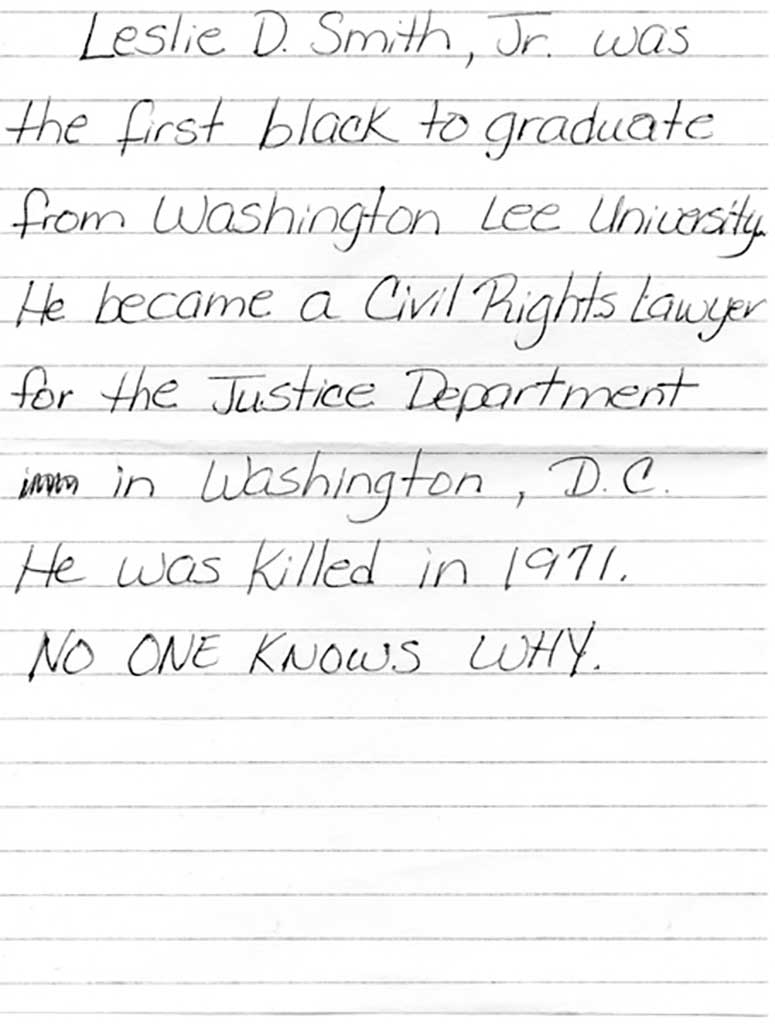 Leslie D. Smith, Jr. was
the first black to graduate
from Washington Lee University.
He became a Civil Rights Lawyer
for the Justice Department
in Washington, D.C.
He was killed in 1971.
NO ONE KNOWS WHY.